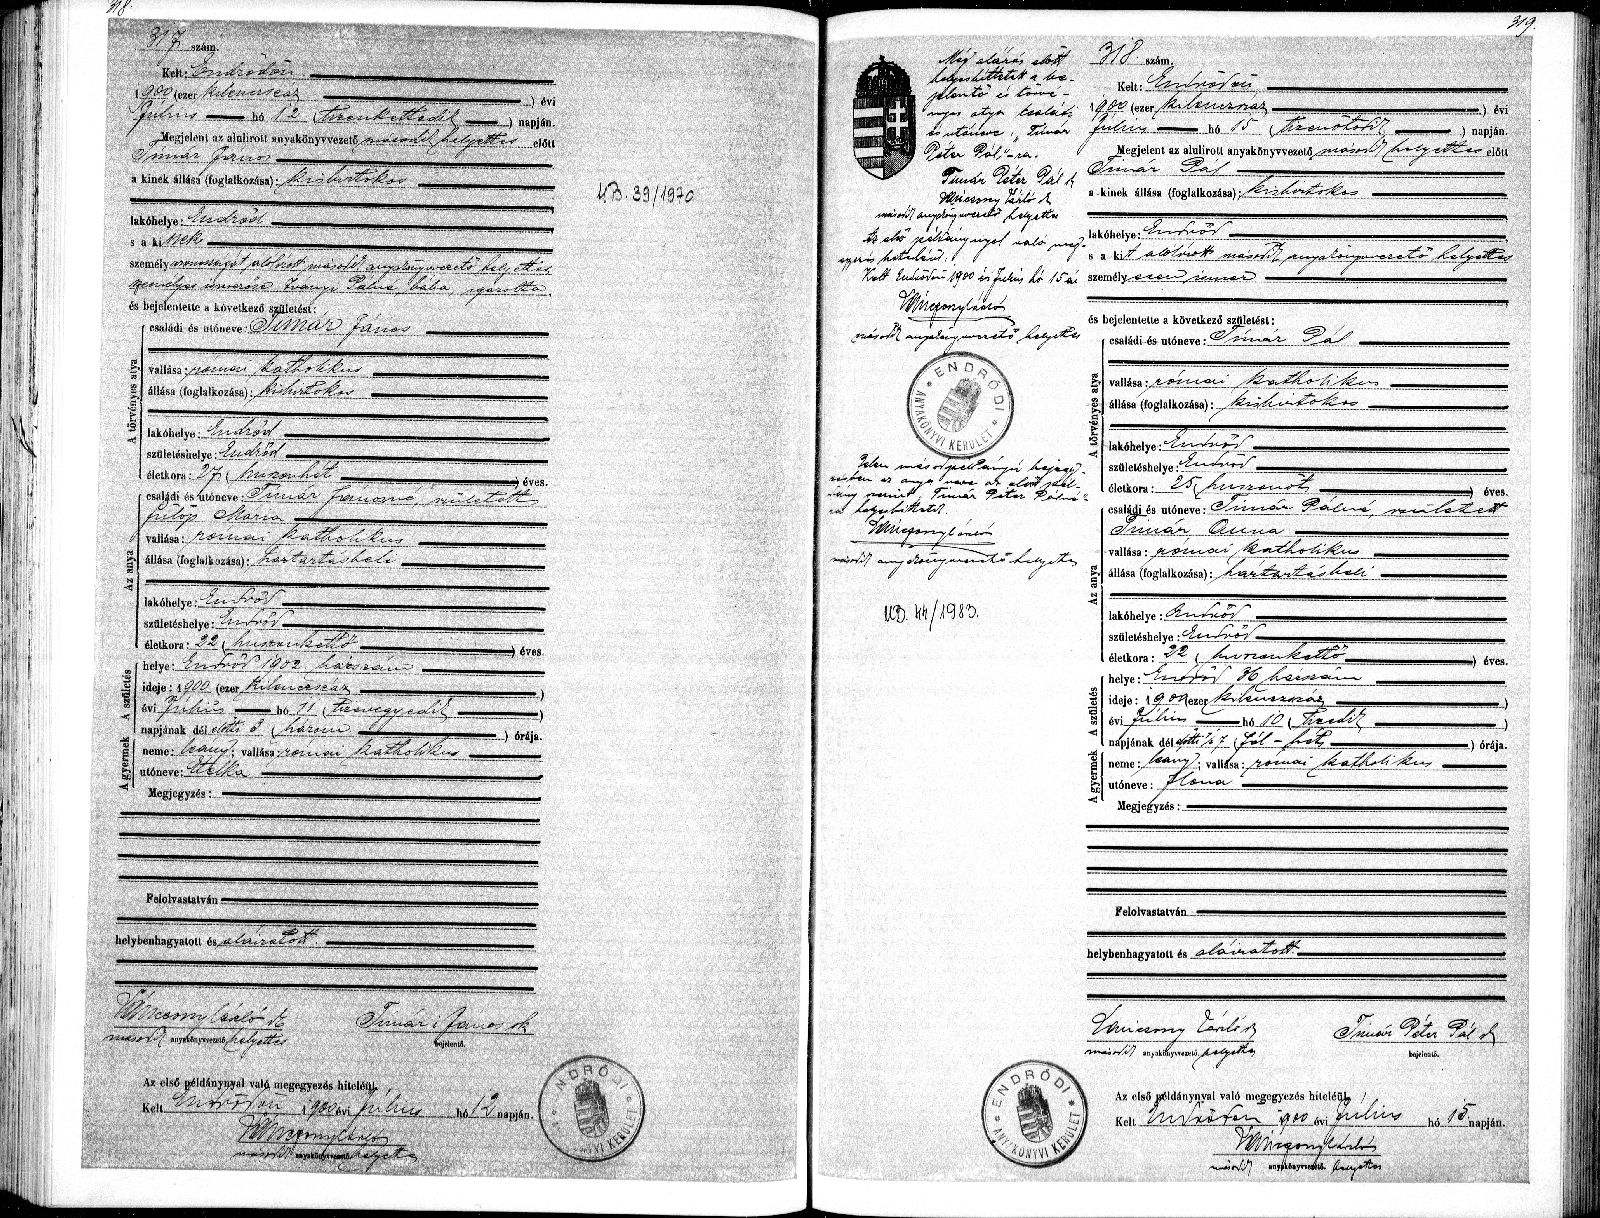 318.
317 szám.
Kelt: Endrődön
1900 (ezer kilenczszáz ) évi
Július hó 12 ( tizenkettedik ) napján.
Megjelent az alulirott anyakönyvvezető második helyettes előtt
Timár János
a kinek állása (foglalkozása): kisbirtokos
lakóhelye: Endrőd
s a kinek
személyazonosságát alulírott második anyakönyvvezető helyettes
személyes ismerőse, Iványi Pálné, bába, igazolta,
és bejelentette a következő születést:
A törvényes atya
családi és utóneve: Timár János
vallása: római katholikus
állása (foglalkozása): kisbirtokos
lakóhelye: Endrőd
születéshelye: Endrőd
életkora: 27 ( huszonhét ) éves.
Az anya
családi és utóneve: Timár Jánosné, született
Fülöp Mária
vallása: római katholikus
állása (foglalkozása): háztartásbeli
lakóhelye: Endrőd
születéshelye: Endrőd
életkora: 22 ( huszonkettő ) éves.
A születés
helye: Endrőd 1902 házszám
ideje: 1900 (ezer kilenczszáz )
évi Július hó 11 ( tizenegyedik )
napjának dél előtti 3 ( három ) órája.
A gyermek
neme: leány; vallása: római katholikus
utóneve: Etelka
Megjegyzés:
Felolvastatván
helybenhagyatott és aláiratott.
Vánicsony László sk
második anyakönyvvezető. helyettes
Timár János sk
bejelentő.
Az első példánynyal való megegyezés hiteléül.
Kelt Endrődön 1900 évi Július hó 12 napján.
Vánicsony László
második anyakönyvvezető. helyettes
ENDRŐDI ANYAKÖNYVI KERÜLET
UB. 39/1970
319.
Még aláírás előtt
helyesbíttetett a be-
jelentő és törvé-
nyes atya családi
és utóneve: Timár
Péter Pál-ra.
Timár Péter Pál sk
Vánicsony László sk
második anyakönyvvezető helyettes
Az első példánynyal való meg-
egyezés hiteléül.
Kelt Endrődön 1900 évi Július hó 15 én
Vánicsony László
második anyakönyvvezető helyettes
ENDRŐDI ANYAKÖNYVI KERÜLET
Jelen másodpéldányú bejegy-
zésben az anya neve az első péld-
ány szerint Timár Péter Pálné-
ra helyesbíttetett.
Vánicsony László
második anyakönyvvezető helyettes
UB. 44/1983.
318 szám.
Kelt: Endrődön
1900 (ezer kilenczszáz ) évi
Július hó 15 ( tizenötödik ) napján.
Megjelent az alulirott anyakönyvvezető második helyettes előtt
Timár Pál
a kinek állása (foglalkozása): kisbirtokos
lakóhelye: Endrőd
s a kit alulírott második anyakönyvvezető helyettes
személyesen ismer
és bejelentette a következő születést:
A törvényes atya
családi és utóneve: Timár Pál
vallása: római katholikus
állása (foglalkozása): kisbirtokos
lakóhelye: Endrőd
születéshelye: Endrőd
életkora: 25 ( huszonöt ) éves.
Az anya
családi és utóneve: Timár Pálné, született
Timár Anna
vallása: római katholikus
állása (foglalkozása): háztartásbeli
lakóhelye: Endrőd
születéshelye: Endrőd
életkora: 22 ( huszonkettő ) éves.
A születés
helye: Endrőd 36 házszám
ideje: 1900 (ezer kilenczszáz )
évi Július hó 10 ( tizedik )
napjának dél előtti ½7 ( fél-hét ) órája.
A gyermek
neme: leány; vallása: római katholikus
utóneve: Ilona
Megjegyzés:
Felolvastatván
helybenhagyatott és aláiratott.
Vánicsony László sk
második anyakönyvvezető. helyettes
Timár Péter Pál sk
bejelentő.
Az első példánynyal való megegyezés hiteléül.
Kelt Endrődön 1900 évi Július hó 15 napján.
Vánicsony László
második anyakönyvvezető. helyettes
ENDRŐDI ANYAKÖNYVI KERÜLET